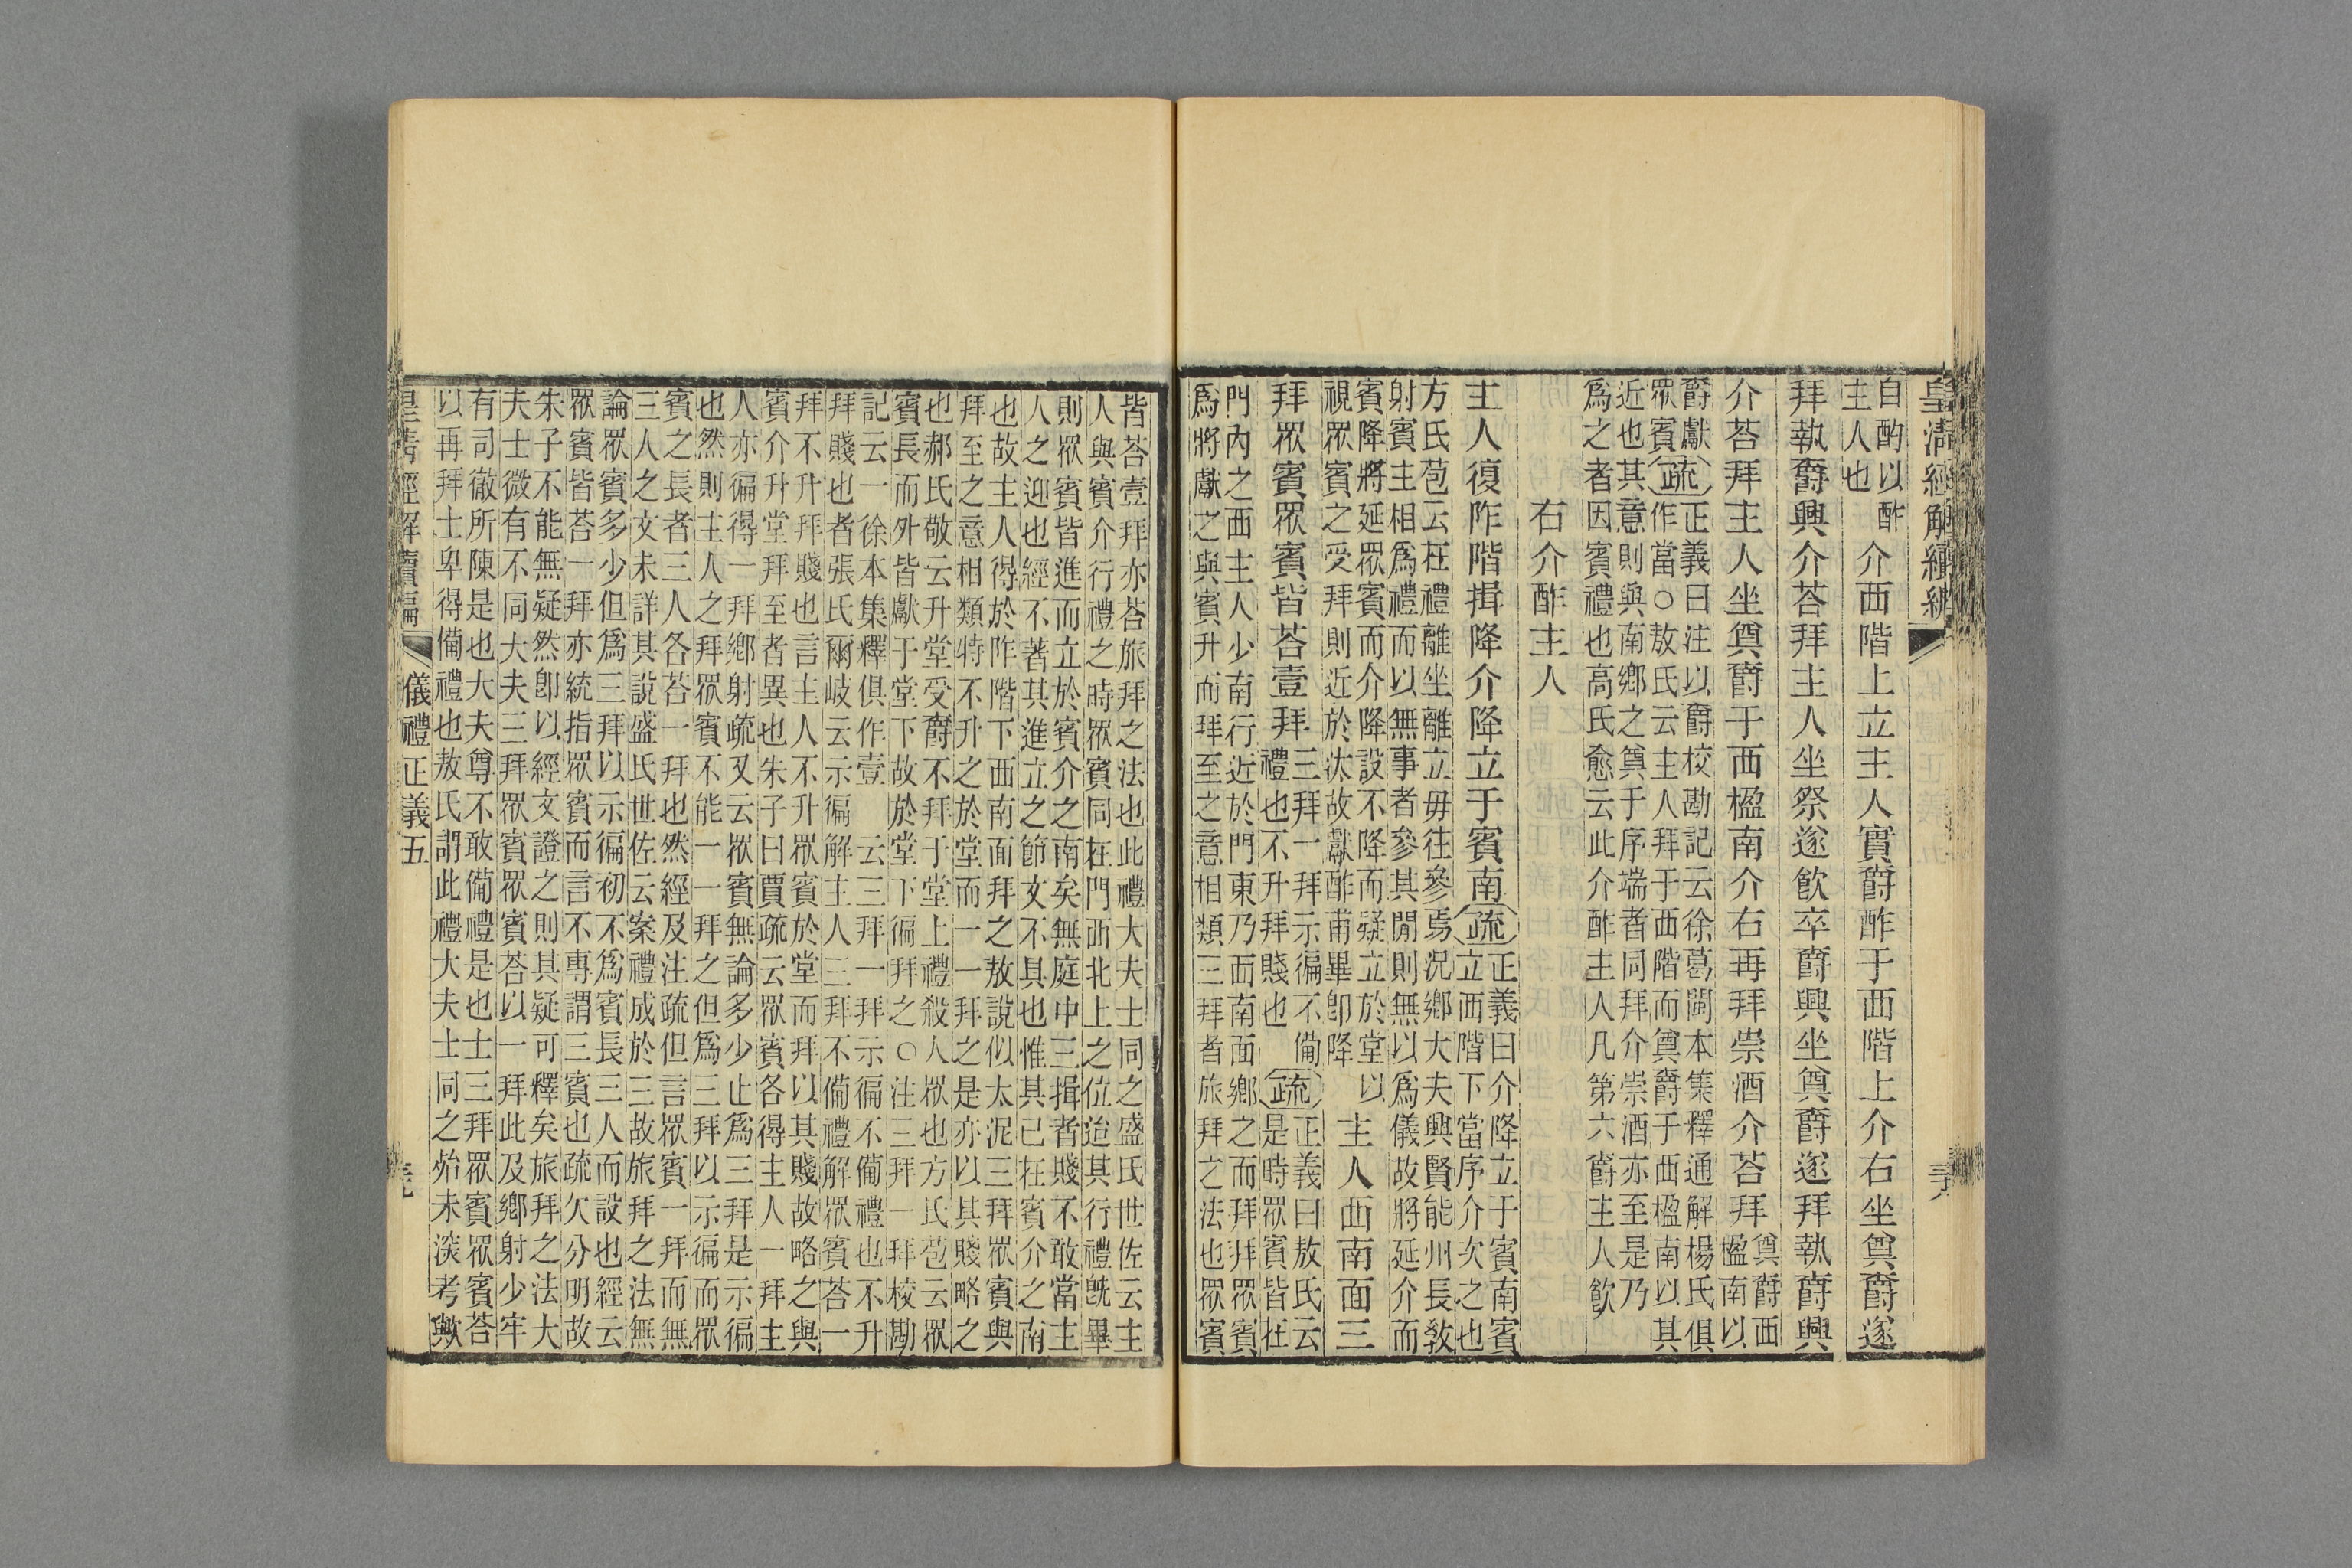 皇清經解續編
自酌以酢
主人也
介西階上立主人實爵酢于西階上介右坐奠爵遂
拜執爵興介荅拜主人坐祭遂飲卒爵興坐奠爵遂拜執爵興
介荅拜主人坐奠爵于西楹南介右再拜崇酒介荅拜
奠爵西
楹南以
爵獻
眾賓
疏
正義曰注以爵校勘記云徐葛閩本集釋通解楊氏俱
作當○敖氏云主人拜于西階而奠爵于西楹南以其
近也其意則與南鄉之奠于序端者同拜介崇酒亦至是乃
爲之者因賓禮也高氏愈云此介酢主人凡第六爵主人飲
右介酢主人
主人復阼階揖降介降立于賓南
疏
正義曰介降立于賓南賓
立西階下當序介次之也
方氏苞云在禮離坐離立毋往參焉況鄉大夫興賢能州長敎
射賓主相爲禮而以無事者參其閒則無以爲儀故將延介而
賓降將延眾賓而介降設不降而疑立於堂以
視眾賓之受拜則近於汰故獻酢甫畢卽降
主人西南面三
拜眾賓眾賓皆荅壹拜
三拜一拜示徧不備
禮也不升拜賤也
疏
正義曰敖氏云
是時眾賓皆在
門內之西主人少南行近於門東乃西南面鄉之而拜拜眾賓
爲將獻之與賓升而拜至之意相類三拜者旅拜之法也眾賓
三八
皆荅壹拜亦荅旅拜之法也此禮大夫士同之盛氏世佐云主
人與賓介行禮之時眾賓同在門西北上之位迨其行禮旣畢
則眾賓皆進而立於賓介之南矣無庭中三揖者賤不敢當主
人之迎也經不著其進立之節文不具也惟其已在賓介之南
也故主人得於阼階下西南面拜之敖說似太泥三拜眾賓與
拜至之意相類特不升之於堂而一一拜之是亦以其賤略之
也郝氏敬云升堂受爵不拜于堂上禮殺人眾也方氏苞云眾
賓長而外皆獻于堂下故於堂下徧拜之○注三拜一拜校勘
記云一徐本集釋俱作壹　云三拜一拜示徧不備禮也不升
拜賤也者張氏爾岐云示徧解主人三拜不備禮解眾賓荅一
拜不升拜賤也言主人不升眾賓於堂而拜以其賤故略之與
賓介升堂拜至者異也朱子曰賈疏云眾賓各得主人一拜主
人亦徧得一拜鄉射疏又云眾賓無論多少止爲三拜是示徧
也然則主人之拜眾賓不能一一拜之但爲三拜以示徧而眾
賓之長者三人各荅一拜也然經及注疏但言眾賓一拜而無
三人之文未詳其說盛氏世佐云案禮成於三故旅拜之法無
論眾賓多少但爲三拜以示徧初不爲賓長三人而設也經云
眾賓皆荅一拜亦統指眾賓而言不專謂三賓也疏欠分明故
朱子不能無疑然卽以經文證之則其疑可釋矣旅拜之法大
夫士微有不同大夫三拜眾賓眾賓荅以一拜此及鄉射少牢
有司徹所陳是也大夫尊不敢備禮是也士三拜眾賓眾賓荅
以再拜士卑得備禮也敖氏謂此禮大夫士同之殆未深考歟
皇清經解續編
儀禮正義五
三九